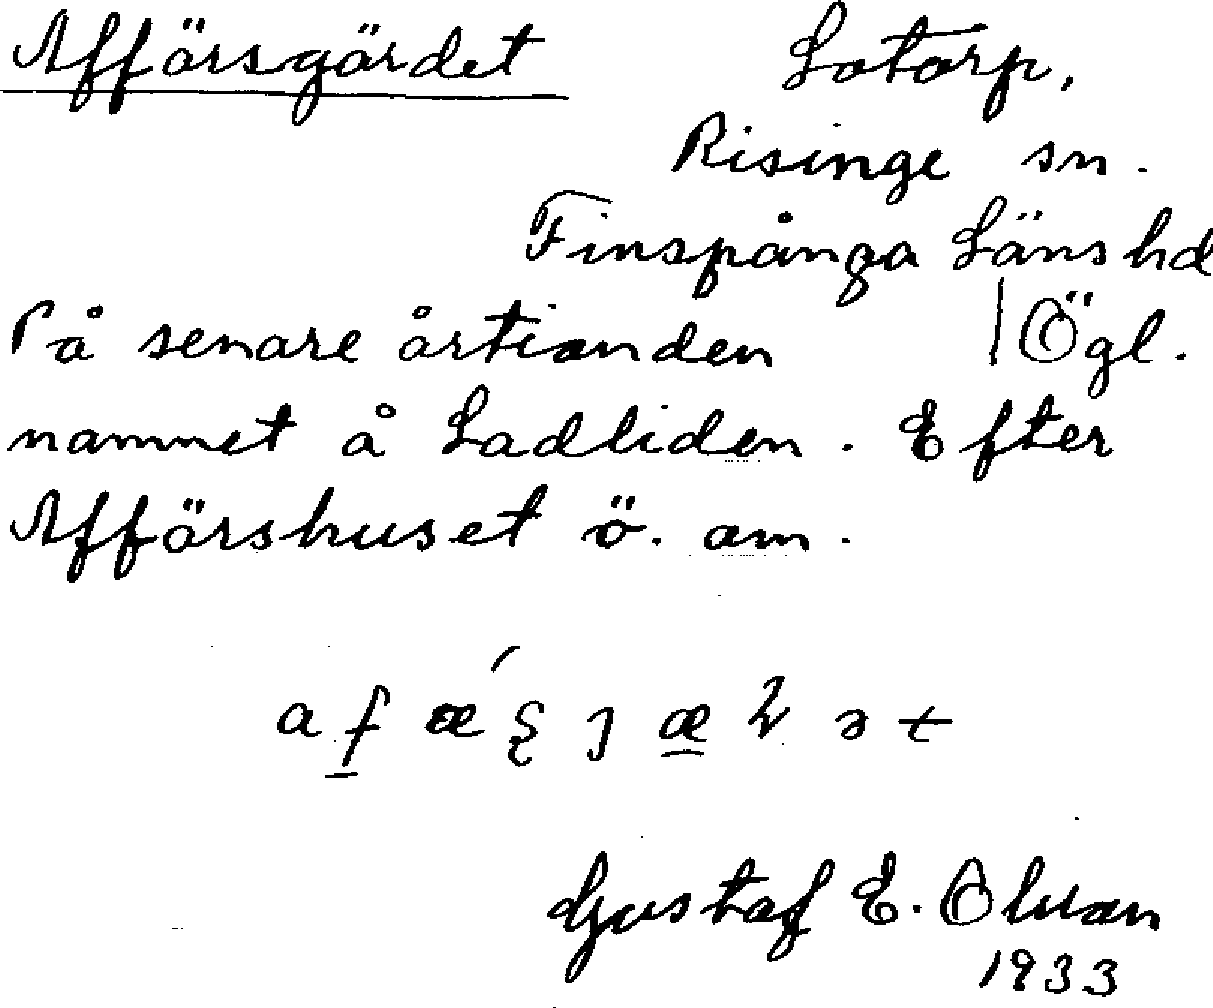 Affärsgärdet Lotorp,
Risinge sn.
Finspånga Läns hd
På senare årtionden Ögl.
namnet å Ladliden. Efter
Affärshuset ö. om.
Gustaf E. Olson
1933